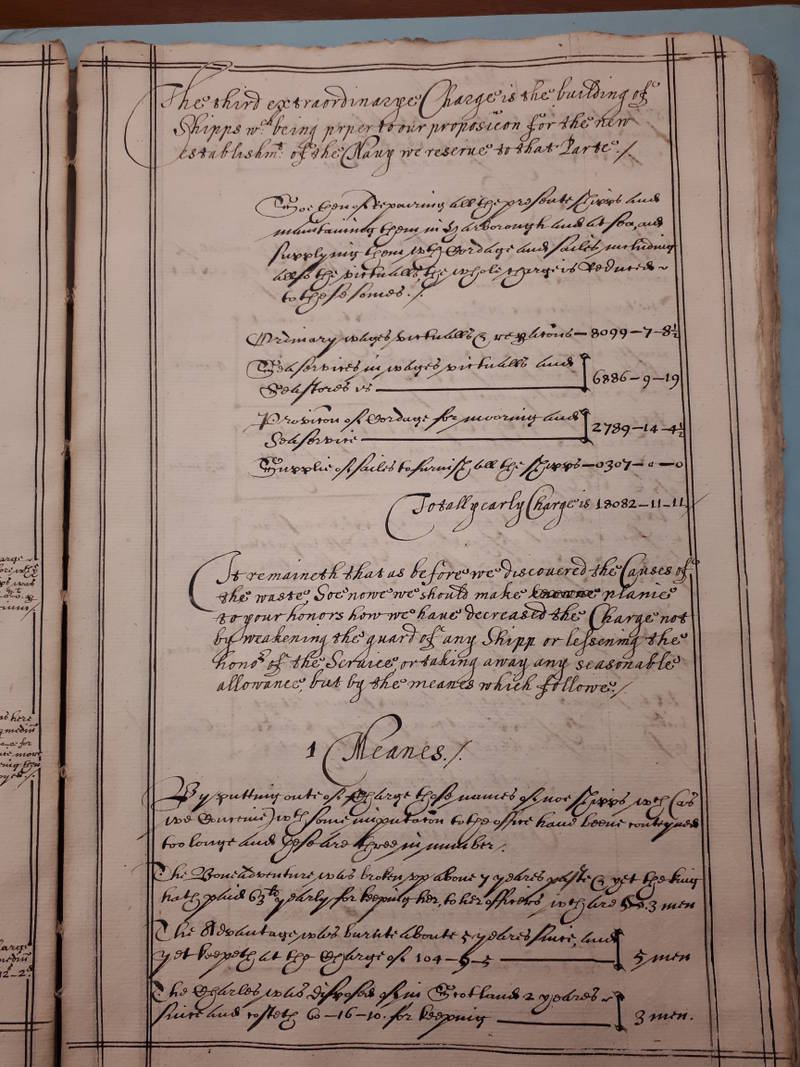 The third extraordinarye Charge is the building of
Shipps wch being prper to our proposicōn for the new
establishmt. of the Navy we reserve to that Parte./
Soe then of repairing all the presente shipps and
maintaining them in Harborough and at sea, and
supplying them wth Cordage and sailes, including
allso the victualls, the whole charge is reduced
to these somes./.
Ordinary wages victualls & repacōns — 8099–7–8½
Seaservices in wages victualls and
Seastores is 6886–9–19
Provision of Cordage for mooring and
Seaservice 2789–14–4½
Supplie of sailes to furnish all the shipps — 0307–0–0
Totall yearly Charge is 18082–11–11
It remaineth that as before we discovered the Causes of
the waste Soe nowe we should make plaine
to your honors how we have decreased the Charge not
by weakening the guard of any Shipp or lessening the
honor of the Service, or taking away any seasonable
allowance, but by the meanes which followe./
1 Meanes./.
By putting oute of Charge those names of noe shipps wch (as
we Conceive) wth some imputacōn to the office have beene conteyned
too longe and these are three in number.
The Boneadventure was broken vp aboue 7 yeares paste & yet the king
hath paid 63li yearly for keeping her, to her officers wch are 3 men
The Advantage was burnte aboute 5 yeares since, and
yet keepeth at the Charge of 104–9–5 5 men
The Charles was disposed of in Scotland 2 yeares
since and costeth 60–16–10. for keeping 3 men.